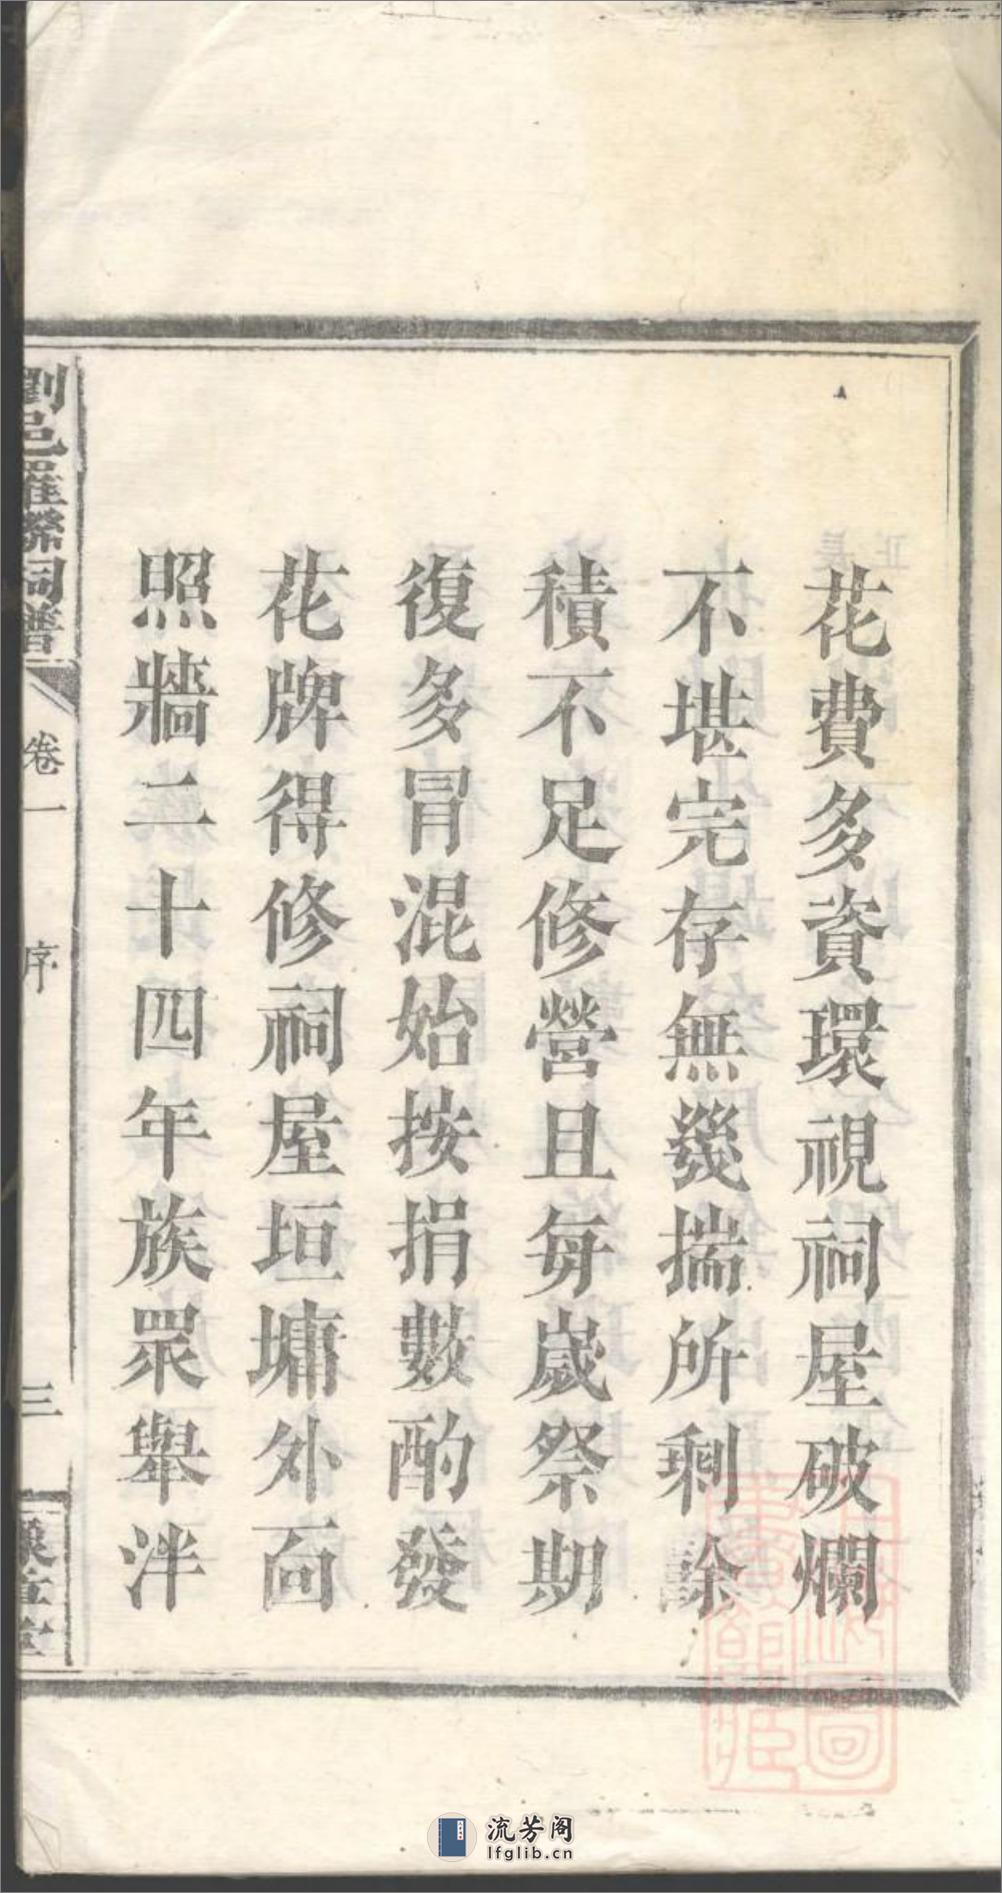 花費多資環視祠屋破爛
不堪完存無幾揣所剩餘
積不足修營且每歲祭期
復多冒混始按捐數酌發
花牌得修祠屋垣墉外面
照牆二十四年族眾舉泮
邑羅祠譜
卷一
序
三
堂
流芳阁
lfglib.cn